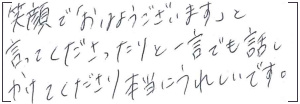 笑顔で「おはようございます」と
言ってくださったりと一言でも話し
かけてくださり本当にうれしいです。